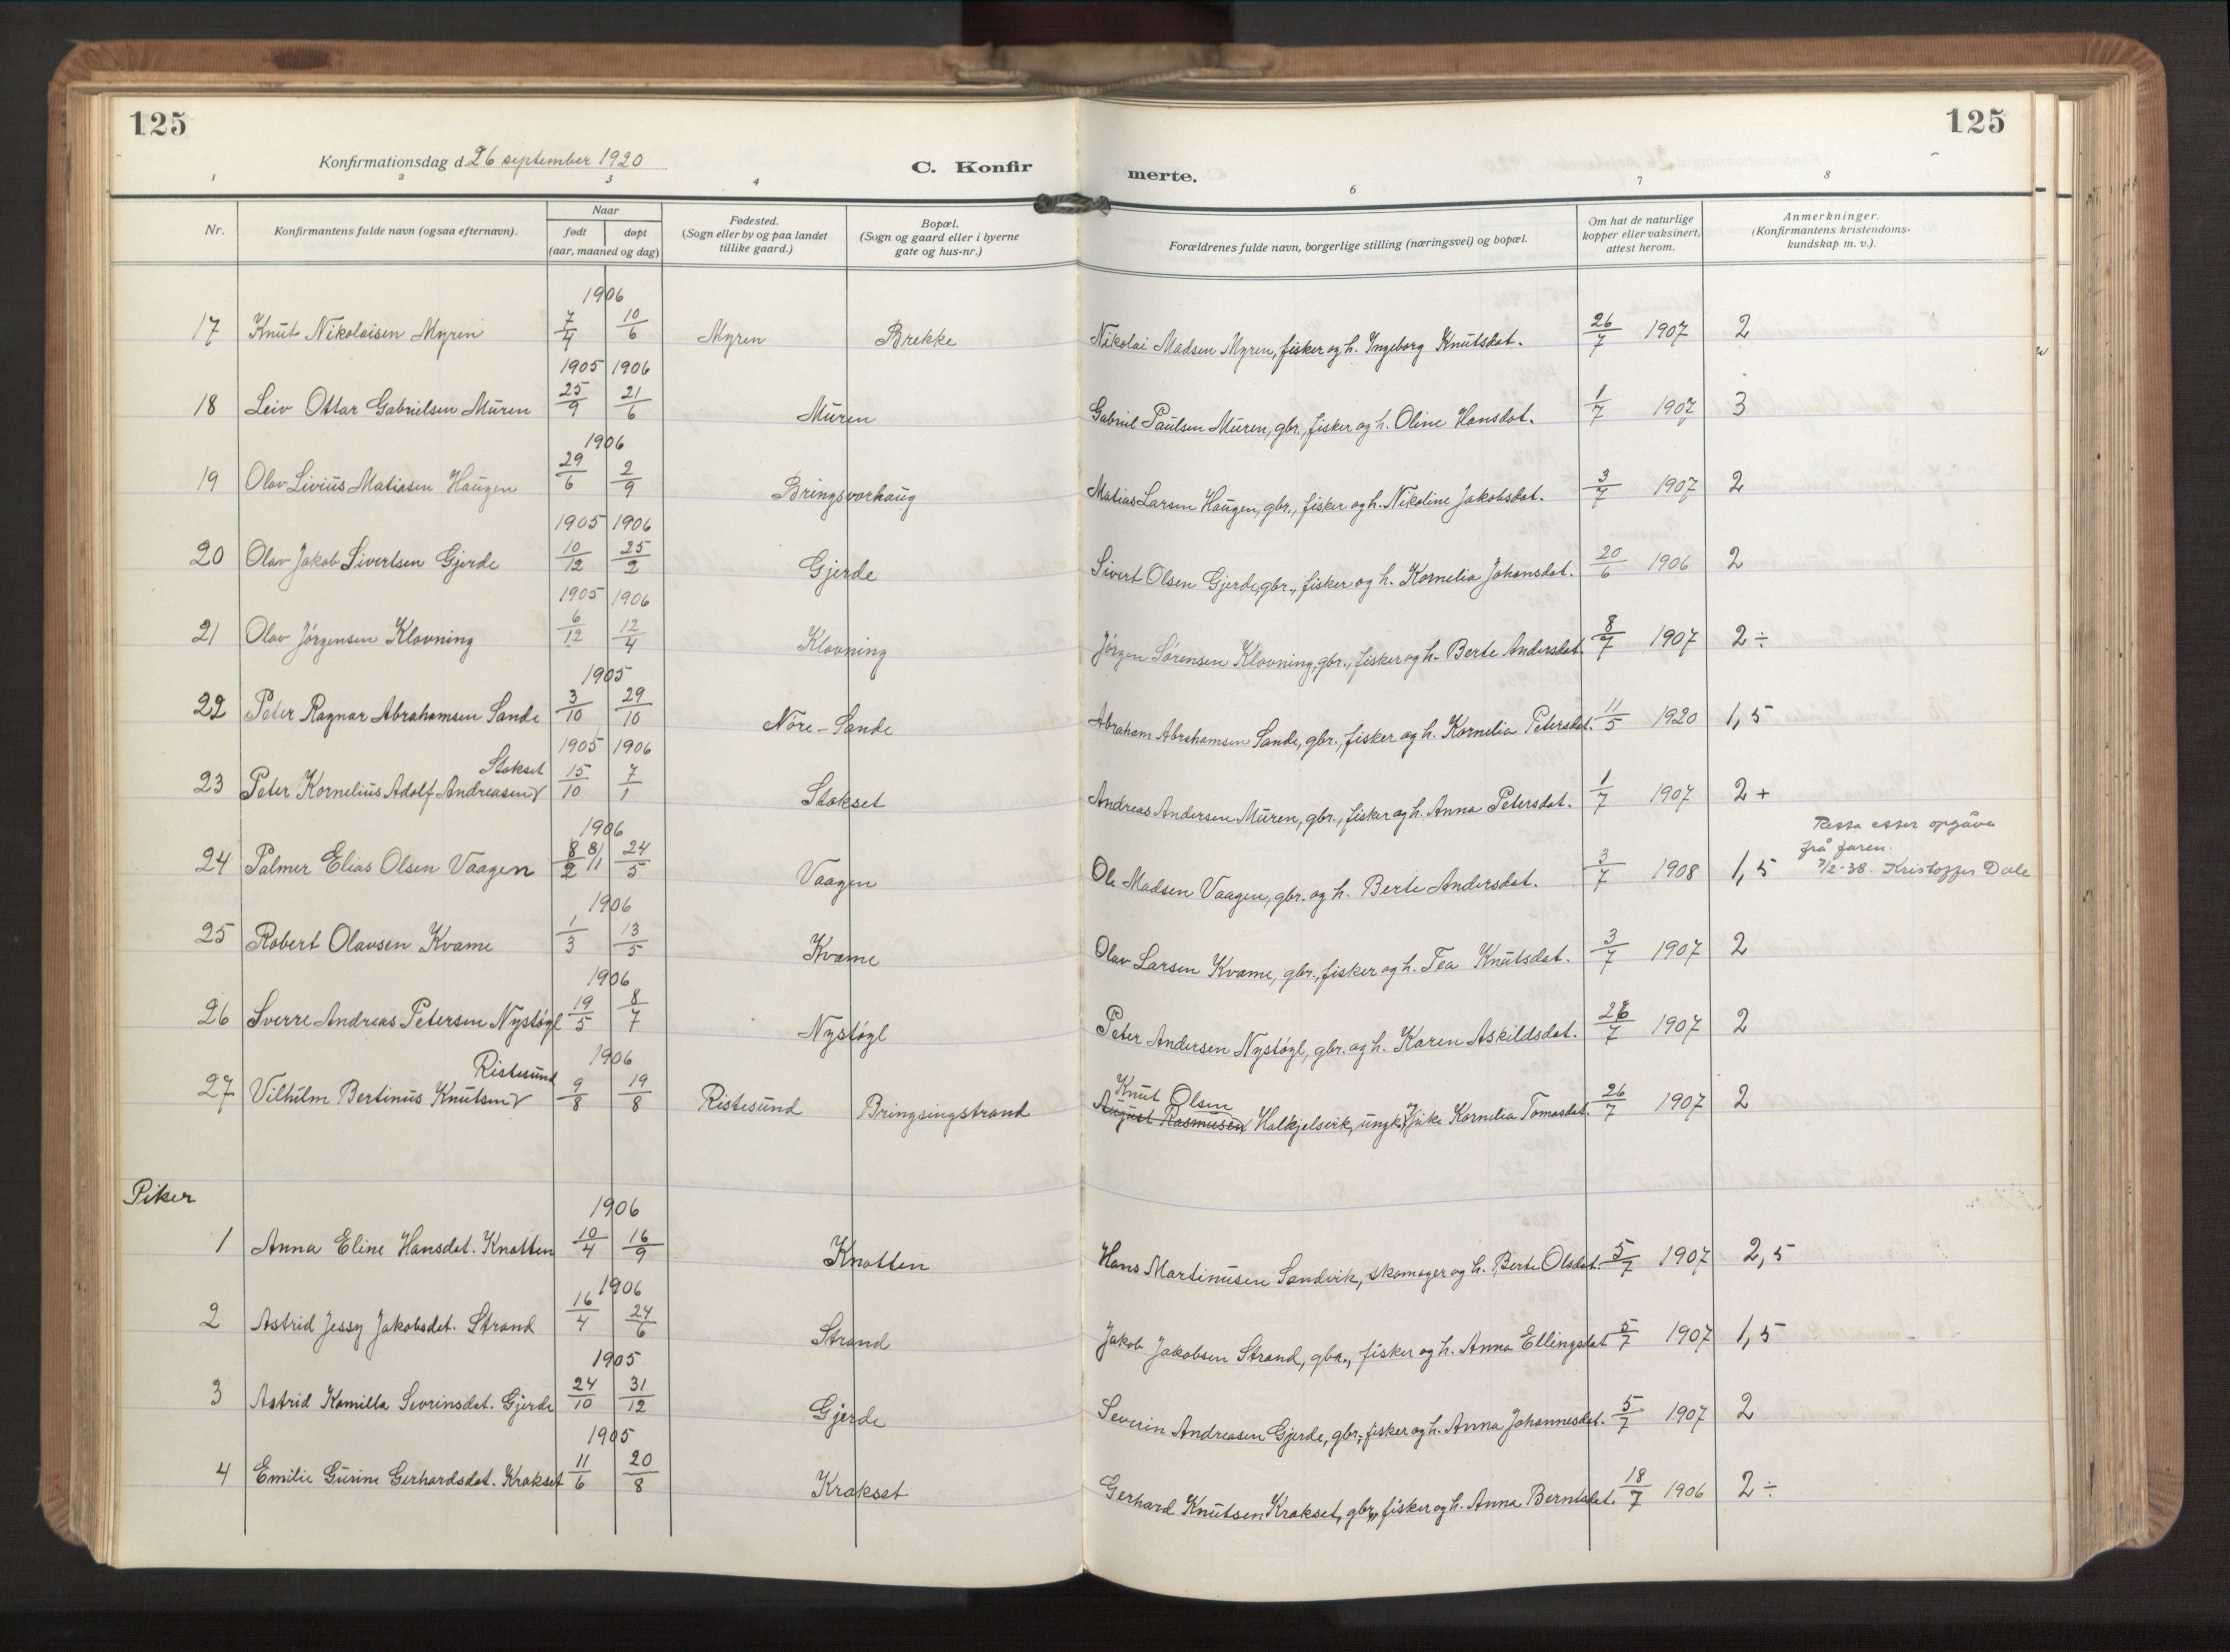 125
125
Konfirmationsdag d. 26 september 1920
C. Konfir
merte.
1 2 3 4 6 7 8
Nr.
Konfirmantens fulde navn (ogsaa efternavn).
Naar
født døpt
(aar, maaned og dag)
Fødested.
(Sogn eller by og paa landet
tillike gaard.)
Bopæl.
(Sogn og gaard eller i byerne
gate og hus-nr.)
Forældrenes fulde navn, borgerlige stilling (næringsvei) og bopæl.
Om hat de naturlige
kopper eller vaksinert,
attest herom.
Anmerkninger.
(Konfirmantens kristendoms-
kundskap m. v.).
1906
17 Knut Nikolaisen Myren 7/4 10/6 Myren Brekke Nikolai Madsen Myren, fisker og h. Ingeborg Knutsdat. 26/7 1907 2
1905 1906
18 Leiv Ottar Gabrielsen Muren 25/9 21/6 Muren Gabriel Paulsen Muren, gbr., fisker og h. Oline Hansdat. 1/7 1907 3
1906
19 Olav Livius Matiasen Haugen 29/6 2/9 Bringsvorhaug Matias Larsen Haugen, gbr., fisker og h. Nikoline Jakobsdat. 3/7 1907 2
1905 1906
20 Olav Jakob Sivertsen Gjerde 10/12 25/2 Gjerde Sivert Olsen Gjerde, gbr., fisker og h. Kornelia Johansdat. 20/6 1906 2
1905 1906
21 Olav Jörgensen Klovning 6/12 12/4 Klovning Jörgen Sörensen Klovning, gbr., fisker og h. Berte Andersdat. 8/7 1907 2 ÷
1905
22 Peter Ragnar Abrahamsen Sande 3/10 29/10 Nöre-Sande Abraham Abrahamsen Sande, gbr., fisker og h. Kornelia Petersdat. 11/5 1920 1,5
Stokset 1905 1906
23 Peter Kornelius Adolf Andreasen 15/10 7/1 Stokset Andreas Andersen Muren, gbr., fisker og h. Anna Petersdat. 1/7 1907 2 +
1906
24 Palmer Elias Olsen Vaagen 8/2 8/1 24/5 Vaagen Ole Madsen Vaagen, gbr. og h. Berte Andersdat. 3/7 1908 1,5
Retta etter opgåve
frå faren.
7/2-38. Kristoffer Dale
1906
25 Robert Olavsen Kvame 1/3 13/5 Kvame Olav Larsen Kvame, gbr., fisker og h. Tea Knutsdat. 3/7 1907 2
1906
26 Sverre Andreas Petersen Nystöyl 19/5 8/7 Nystöyl Peter Andersen Nystöyl, gbr. og h. Karen Askildsdat. 26/7 1907 2
Ristesund 1906 Knut Olsen
27 Vilhelm Bertinus Knutsen 9/8 19/8 Ristesund Bringsingstrand August Rasmusen Halkjelsvik, ungk., pike Kornelia Tomasdat. 26/7 1907 2
Piker
1906
1 Anna Eline Hansdat. Knotten 10/4 16/9 Knotten Hans Martinusen Sandvik, skomager og h. Berte Olsdat. 5/7 1907 2,5
1906
2 Astrid Jessy Jakobsdat. Strand 16/4 24/6 Strand Jakob Jakobsen Strand, gbr., fisker og h. Anna Ellingsdat 5/7 1907 1,5
1905
3 Astrid Kamilla Sevrinsdat. Gjerde 24/10 31/12 Gjerde Severin Andreasen Gjerde, gbr., fisker og h. Anna Johannesdat. 5/7 1907 2
1905
4 Emilie Gurine Gerhardsdat. Krokset 11/6 20/8 Krokset Gerhard Knutsen Krokset, gbr., fisker og h. Anna Berntsdat. 18/7 1906 2 ÷